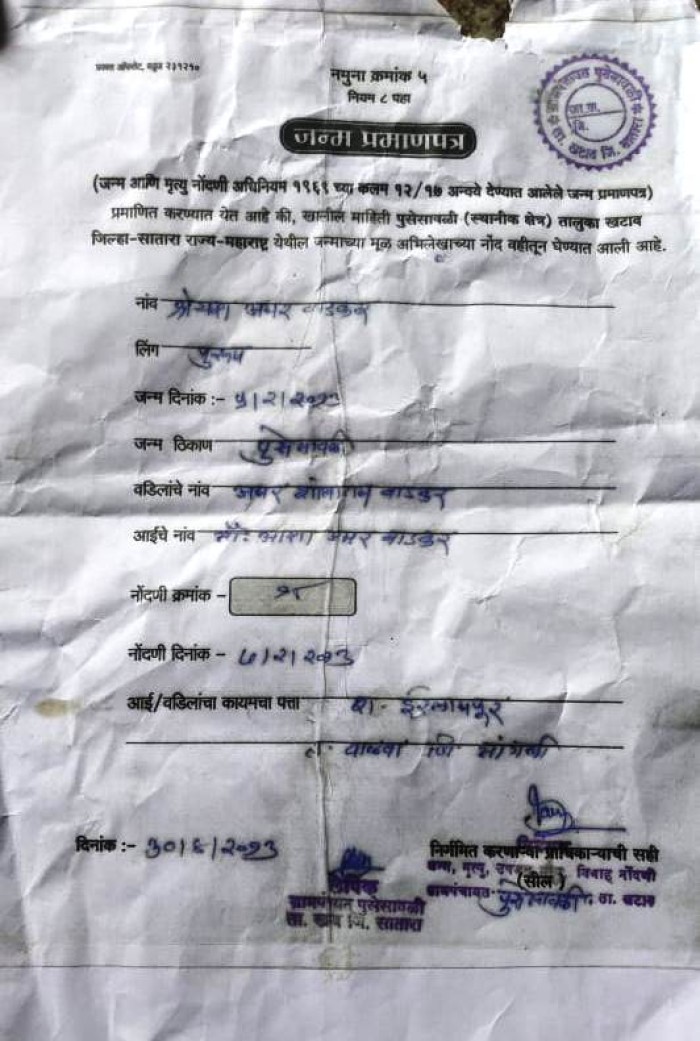 नमुना क्रमांक ५
नियम ८ पहा
जन्म प्रमाणपत्र
ग्रामपंचायत पुसेसावळी
जा.क्र.
दि.
ता. खटाव जि. सातारा
(जन्म आणि मृत्यु नोंदणी अधिनियम १९६९ च्या कलम १२/१७ अन्वये देण्यात आलेले जन्म प्रमाणपत्र)
प्रमाणित करण्यात येत आहे की, खालील माहिती पुसेसावळी (स्थानीक क्षेत्र) तालुका खटाव
जिल्हा-सातारा राज्य-महाराष्ट्र येथील जन्माच्या मूळ अभिलेखाच्या नोंद वहीतून घेण्यात आली आहे.
नांव अमर वाडकर
लिंग पुरूष
जन्म दिनांक :- ५।२।२०१३
जन्म ठिकाण पुसेसावळी
वडिलांचे नांव अमर वाडकर
आईचे नांव सौ. आशा अमर वाडकर
नोंदणी क्रमांक -
नोंदणी दिनांक - ७।२।२०१३
आई/वडिलांचा कायमचा पत्ता इस्लामपूर
वाळवा जि सांगली
दिनांक :- ३०।६।२०१३
निर्गमित करणाऱ्या प्राधिकाऱ्याची सही
जन्म, मृत्यु, विवाह नोंदणी
(सील)
ग्रामपंचायत पुसेसावळी, ता. खटाव
लिपिक
ग्रामपंचायत पुसेसावळी
ता. खटाव जि. सातारा